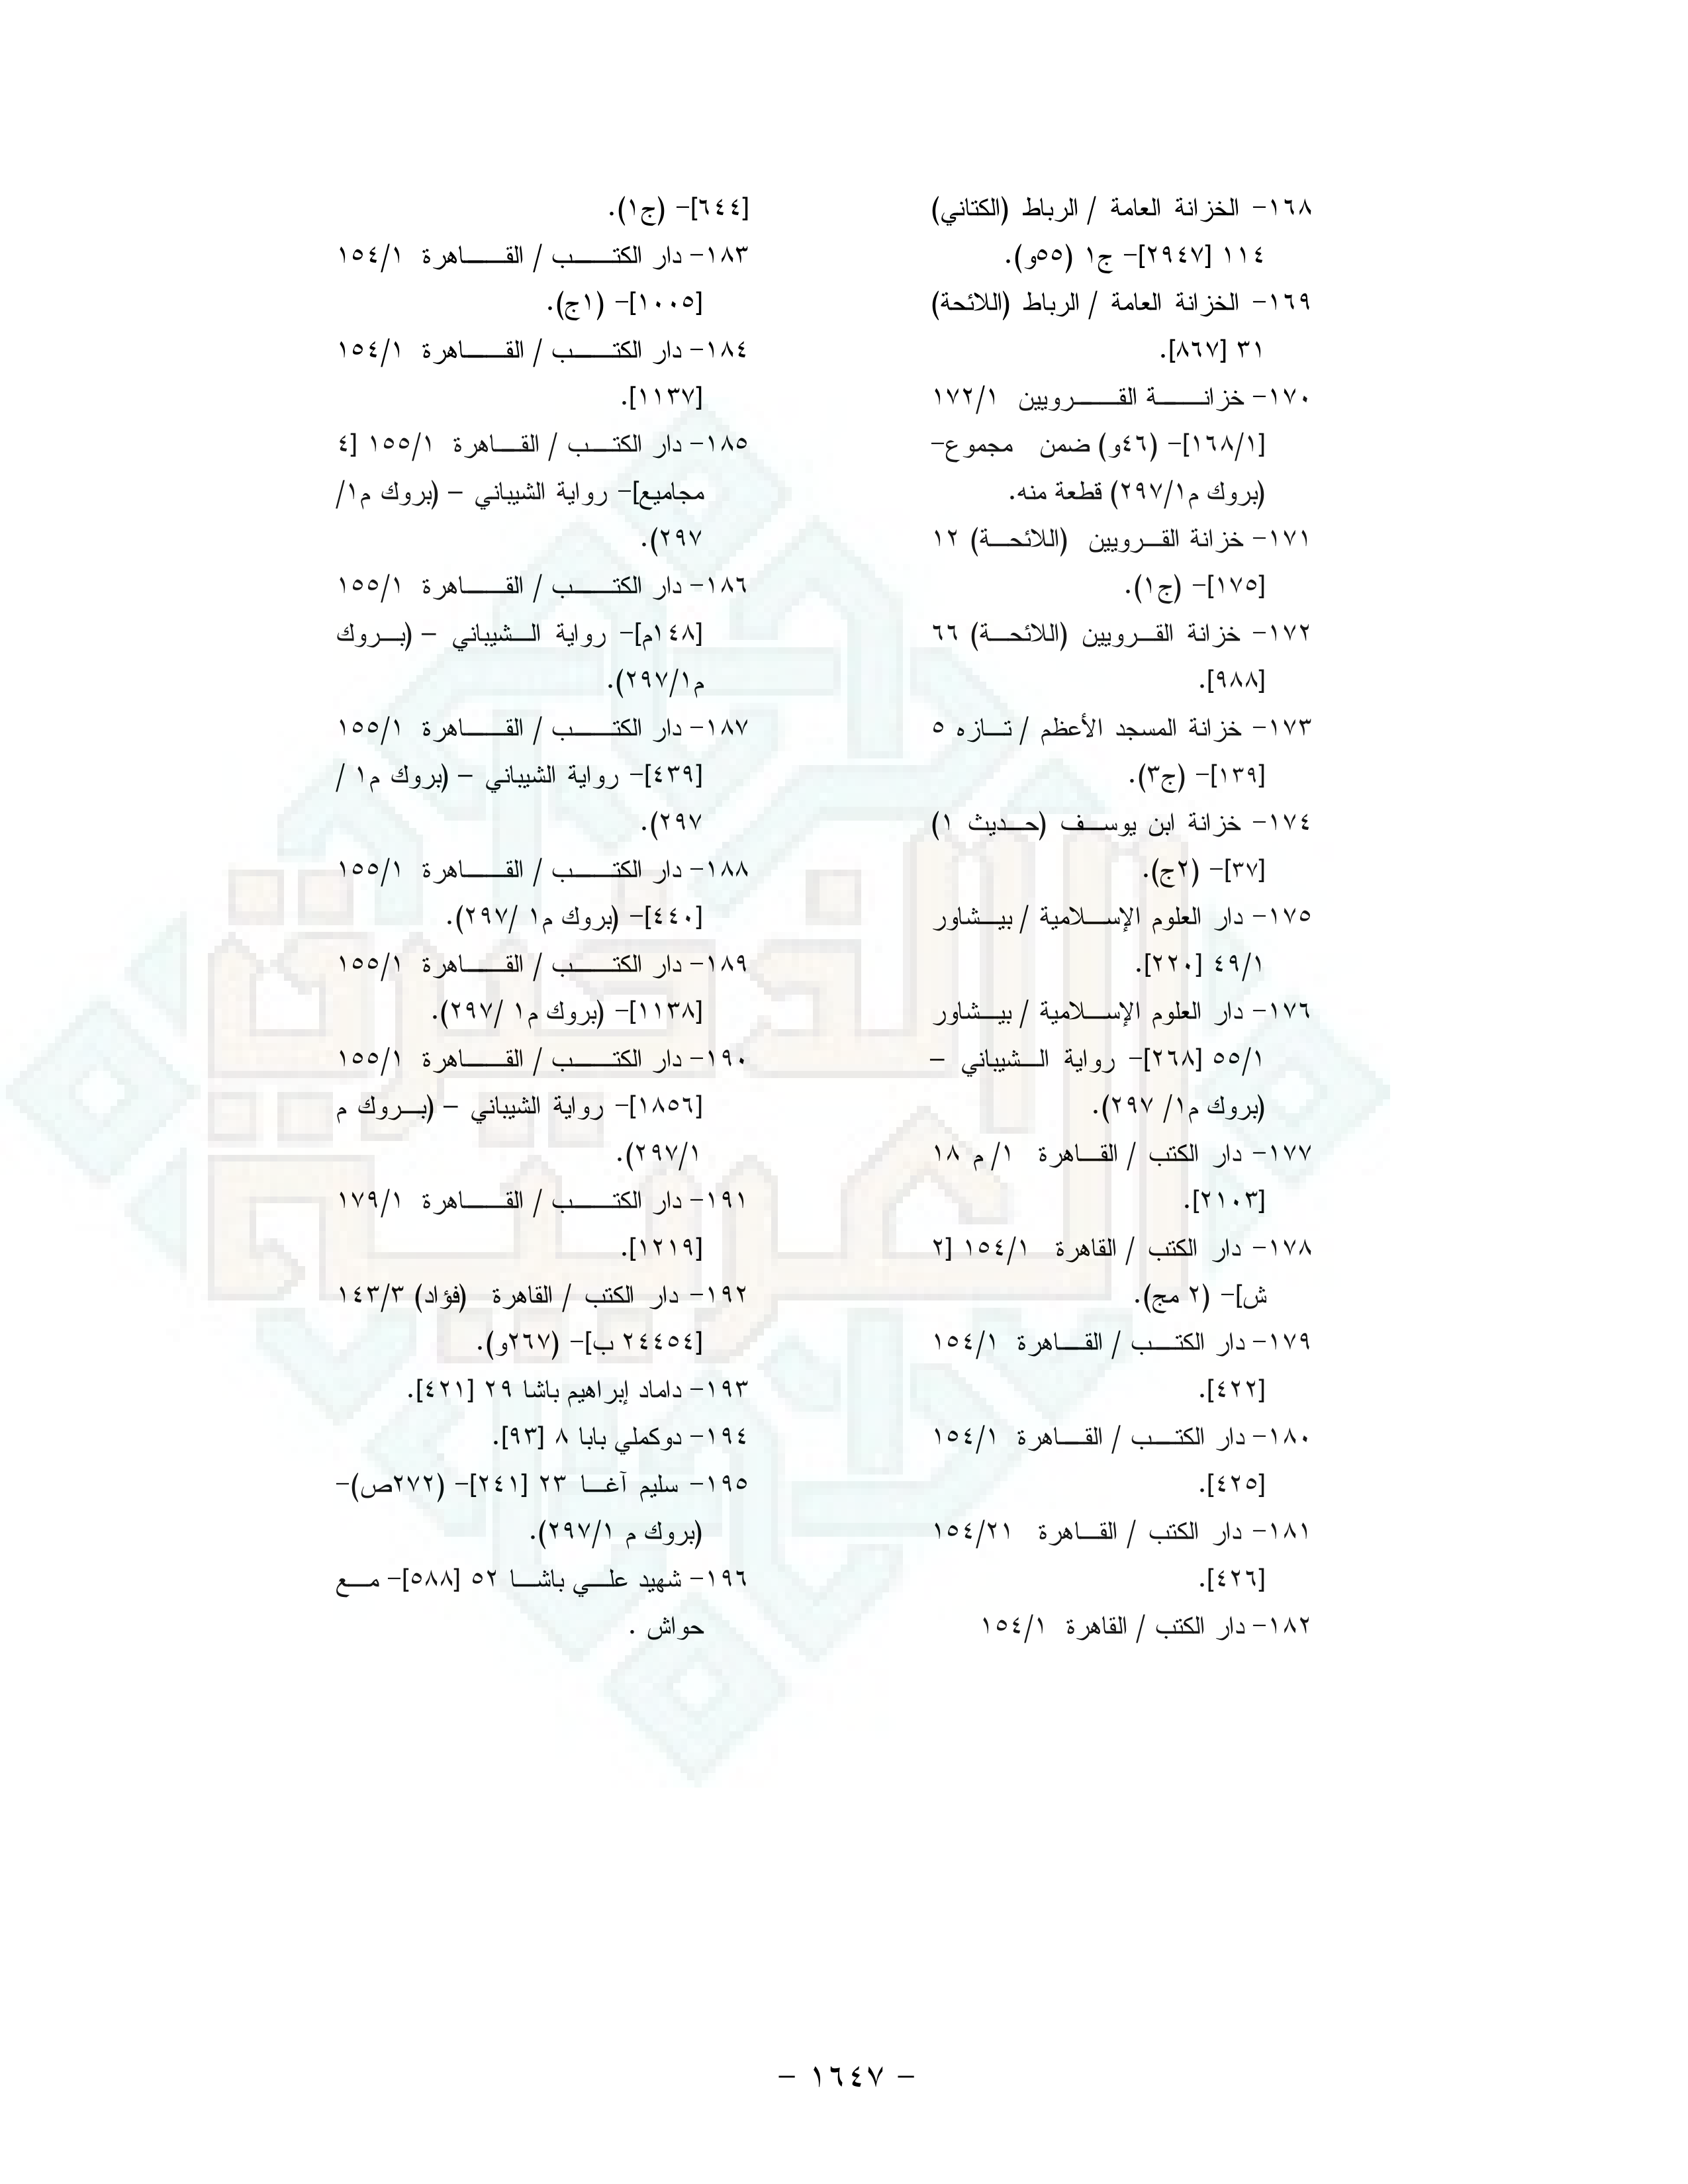 ١٦٨- الخزانة العامة / الرباط (الكتاني)
١١٤ [٢٩٤٧]- ج١ (٥٥و).
١٦٩- الخزانة العامة / الرباط (اللائحة)
٣١ [٨٦٧].
١٧٠- خزانة القرويين ١٧٢/١
[١٦٨/١]- (٤٦و) ضمن مجموع-
(بروك م٢٩٧/١) قطعة منه.
١٧١- خزانة القرويين (اللائحة) ١٢
[١٧٥]- (ج١).
١٧٢- خزانة القرويين (اللائحة) ٦٦
[٩٨٨].
١٧٣- خزانة المسجد الأعظم / تازه ٥
[١٣٩]- (ج٣).
١٧٤- خزانة ابن يوسف (حديث ١)
[٣٧]- (٢ج).
١٧٥- دار العلوم الإسلامية / بيشاور
٤٩/١ [٢٢٠].
١٧٦- دار العلوم الإسلامية / بيشاور
٥٥/١ [٢٦٨]- رواية الشيباني –
(بروك م١/ ٢٩٧).
١٧٧- دار الكتب / القاهرة ١/ م ١٨
[٢١٠٣].
١٧٨- دار الكتب / القاهرة ١٥٤/١ [٢
ش]- (٢ مج).
١٧٩- دار الكتب / القاهرة ١٥٤/١
[٤٢٢].
١٨٠- دار الكتب / القاهرة ١٥٤/١
[٤٢٥].
١٨١- دار الكتب / القاهرة ١٥٤/٢١
[٤٢٦].
١٨٢- دار الكتب / القاهرة ١٥٤/١
[٦٤٤]- (ج١).
١٨٣- دار الكتب / القاهرة ١٥٤/١
[١٠٠٥]- (١ج).
١٨٤- دار الكتب / القاهرة ١٥٤/١
[١١٣٧].
١٨٥- دار الكتب / القاهرة ١٥٥/١ [٤
مجاميع]- رواية الشيباني – (بروك م١/
٢٩٧).
١٨٦- دار الكتب / القاهرة ١٥٥/١
[١٤٨م]- رواية الشيباني – (بروك
م٢٩٧/١).
١٨٧- دار الكتب / القاهرة ١٥٥/١
[٤٣٩]- رواية الشيباني – (بروك م١ /
٢٩٧).
١٨٨- دار الكتب / القاهرة ١٥٥/١
[٤٤٠]- (بروك م١ /٢٩٧).
١٨٩- دار الكتب / القاهرة ١٥٥/١
[١١٣٨]- (بروك م١ /٢٩٧).
١٩٠- دار الكتب / القاهرة ١٥٥/١
[١٨٥٦]- رواية الشيباني – (بروك م
٢٩٧/١).
١٩١- دار الكتب / القاهرة ١٧٩/١
[١٢١٩].
١٩٢- دار الكتب / القاهرة (فؤاد) ١٤٣/٣
[٢٤٤٥٤ ب]- (٢٦٧و).
١٩٣- داماد إبراهيم باشا ٢٩ [٤٢١].
١٩٤- دوكملي بابا ٨ [٩٣].
١٩٥- سليم آغا ٢٣ [٢٤١]- (٢٧٢ص)-
(بروك م ٢٩٧/١).
١٩٦- شهيد علي باشا ٥٢ [٥٨٨]- مع
حواش .
الذخيرة
العربية
- ١٦٤٧ -